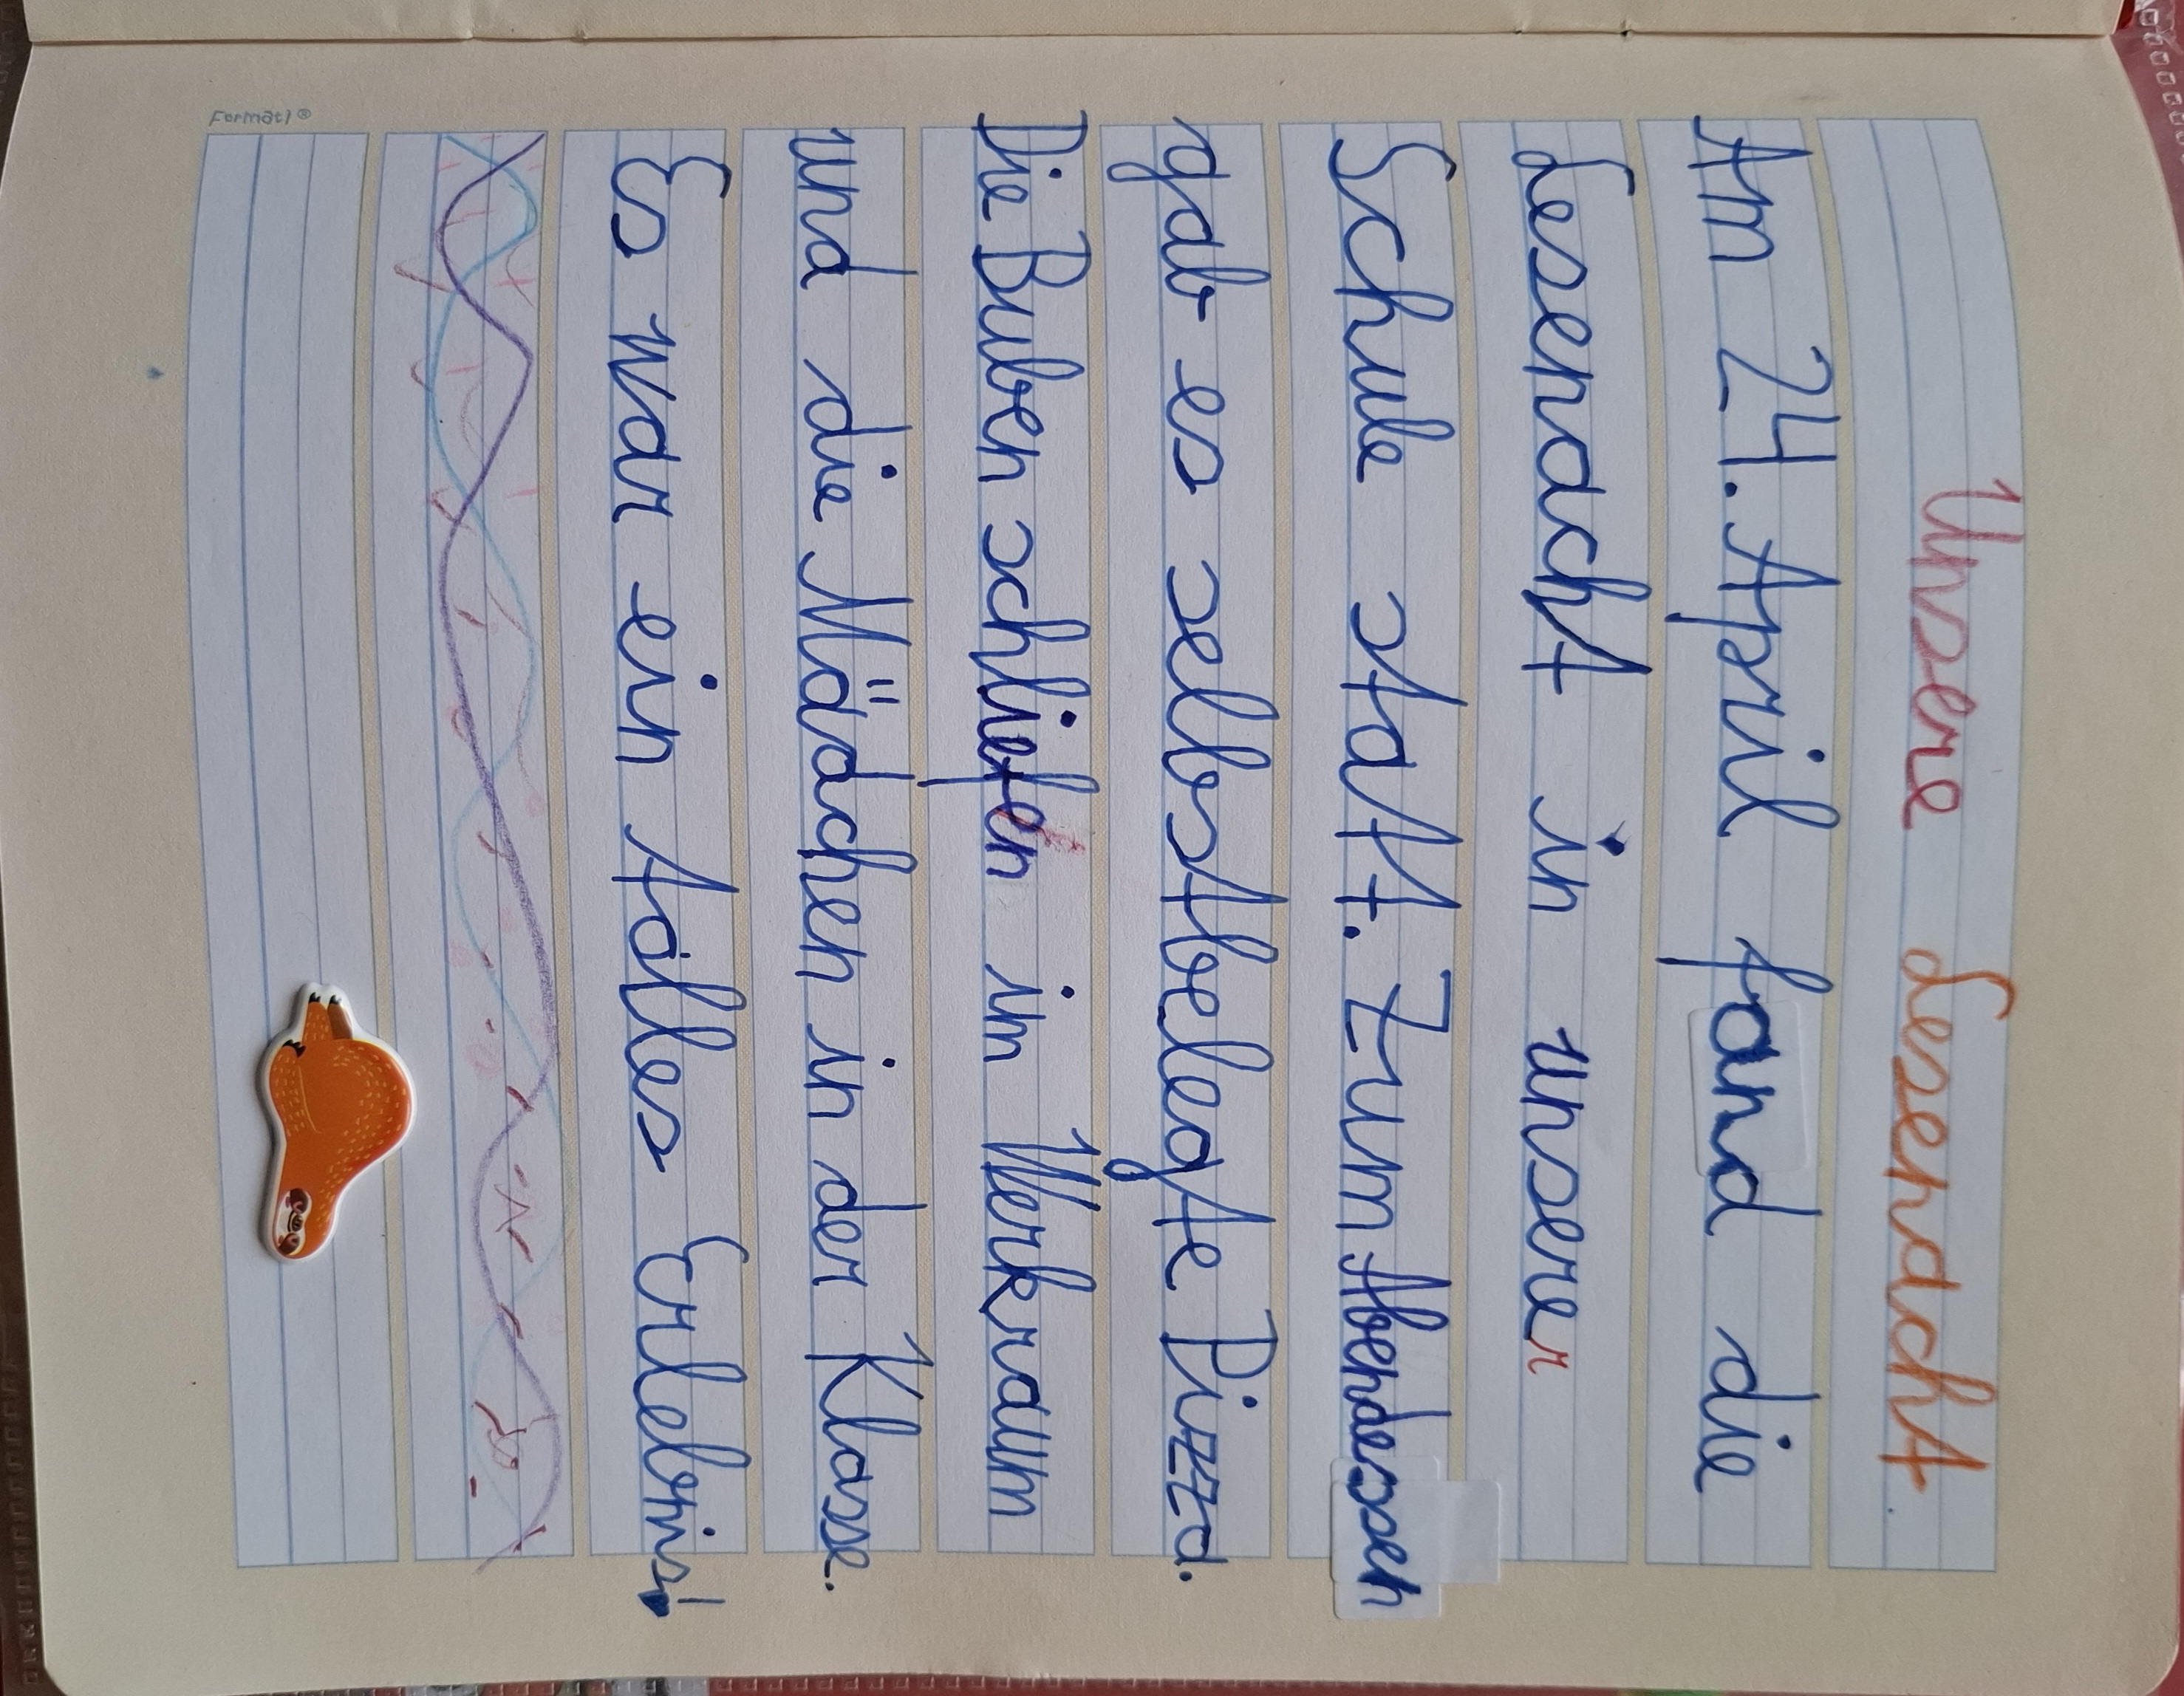 Unsere Lesenacht
Am 24. April fand die
Lesenacht in unserer
Schule statt. Zum Abendessen
gab es selbstbelegte Pizza.
Die Buben schliefen im Werkraum
und die Mädchen in der Klasse.
Es war ein tolles Erlebnis!
Format1®